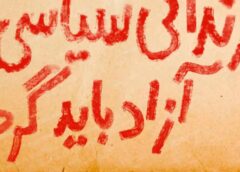 ندانی سیاسی
آزاد باید گرد